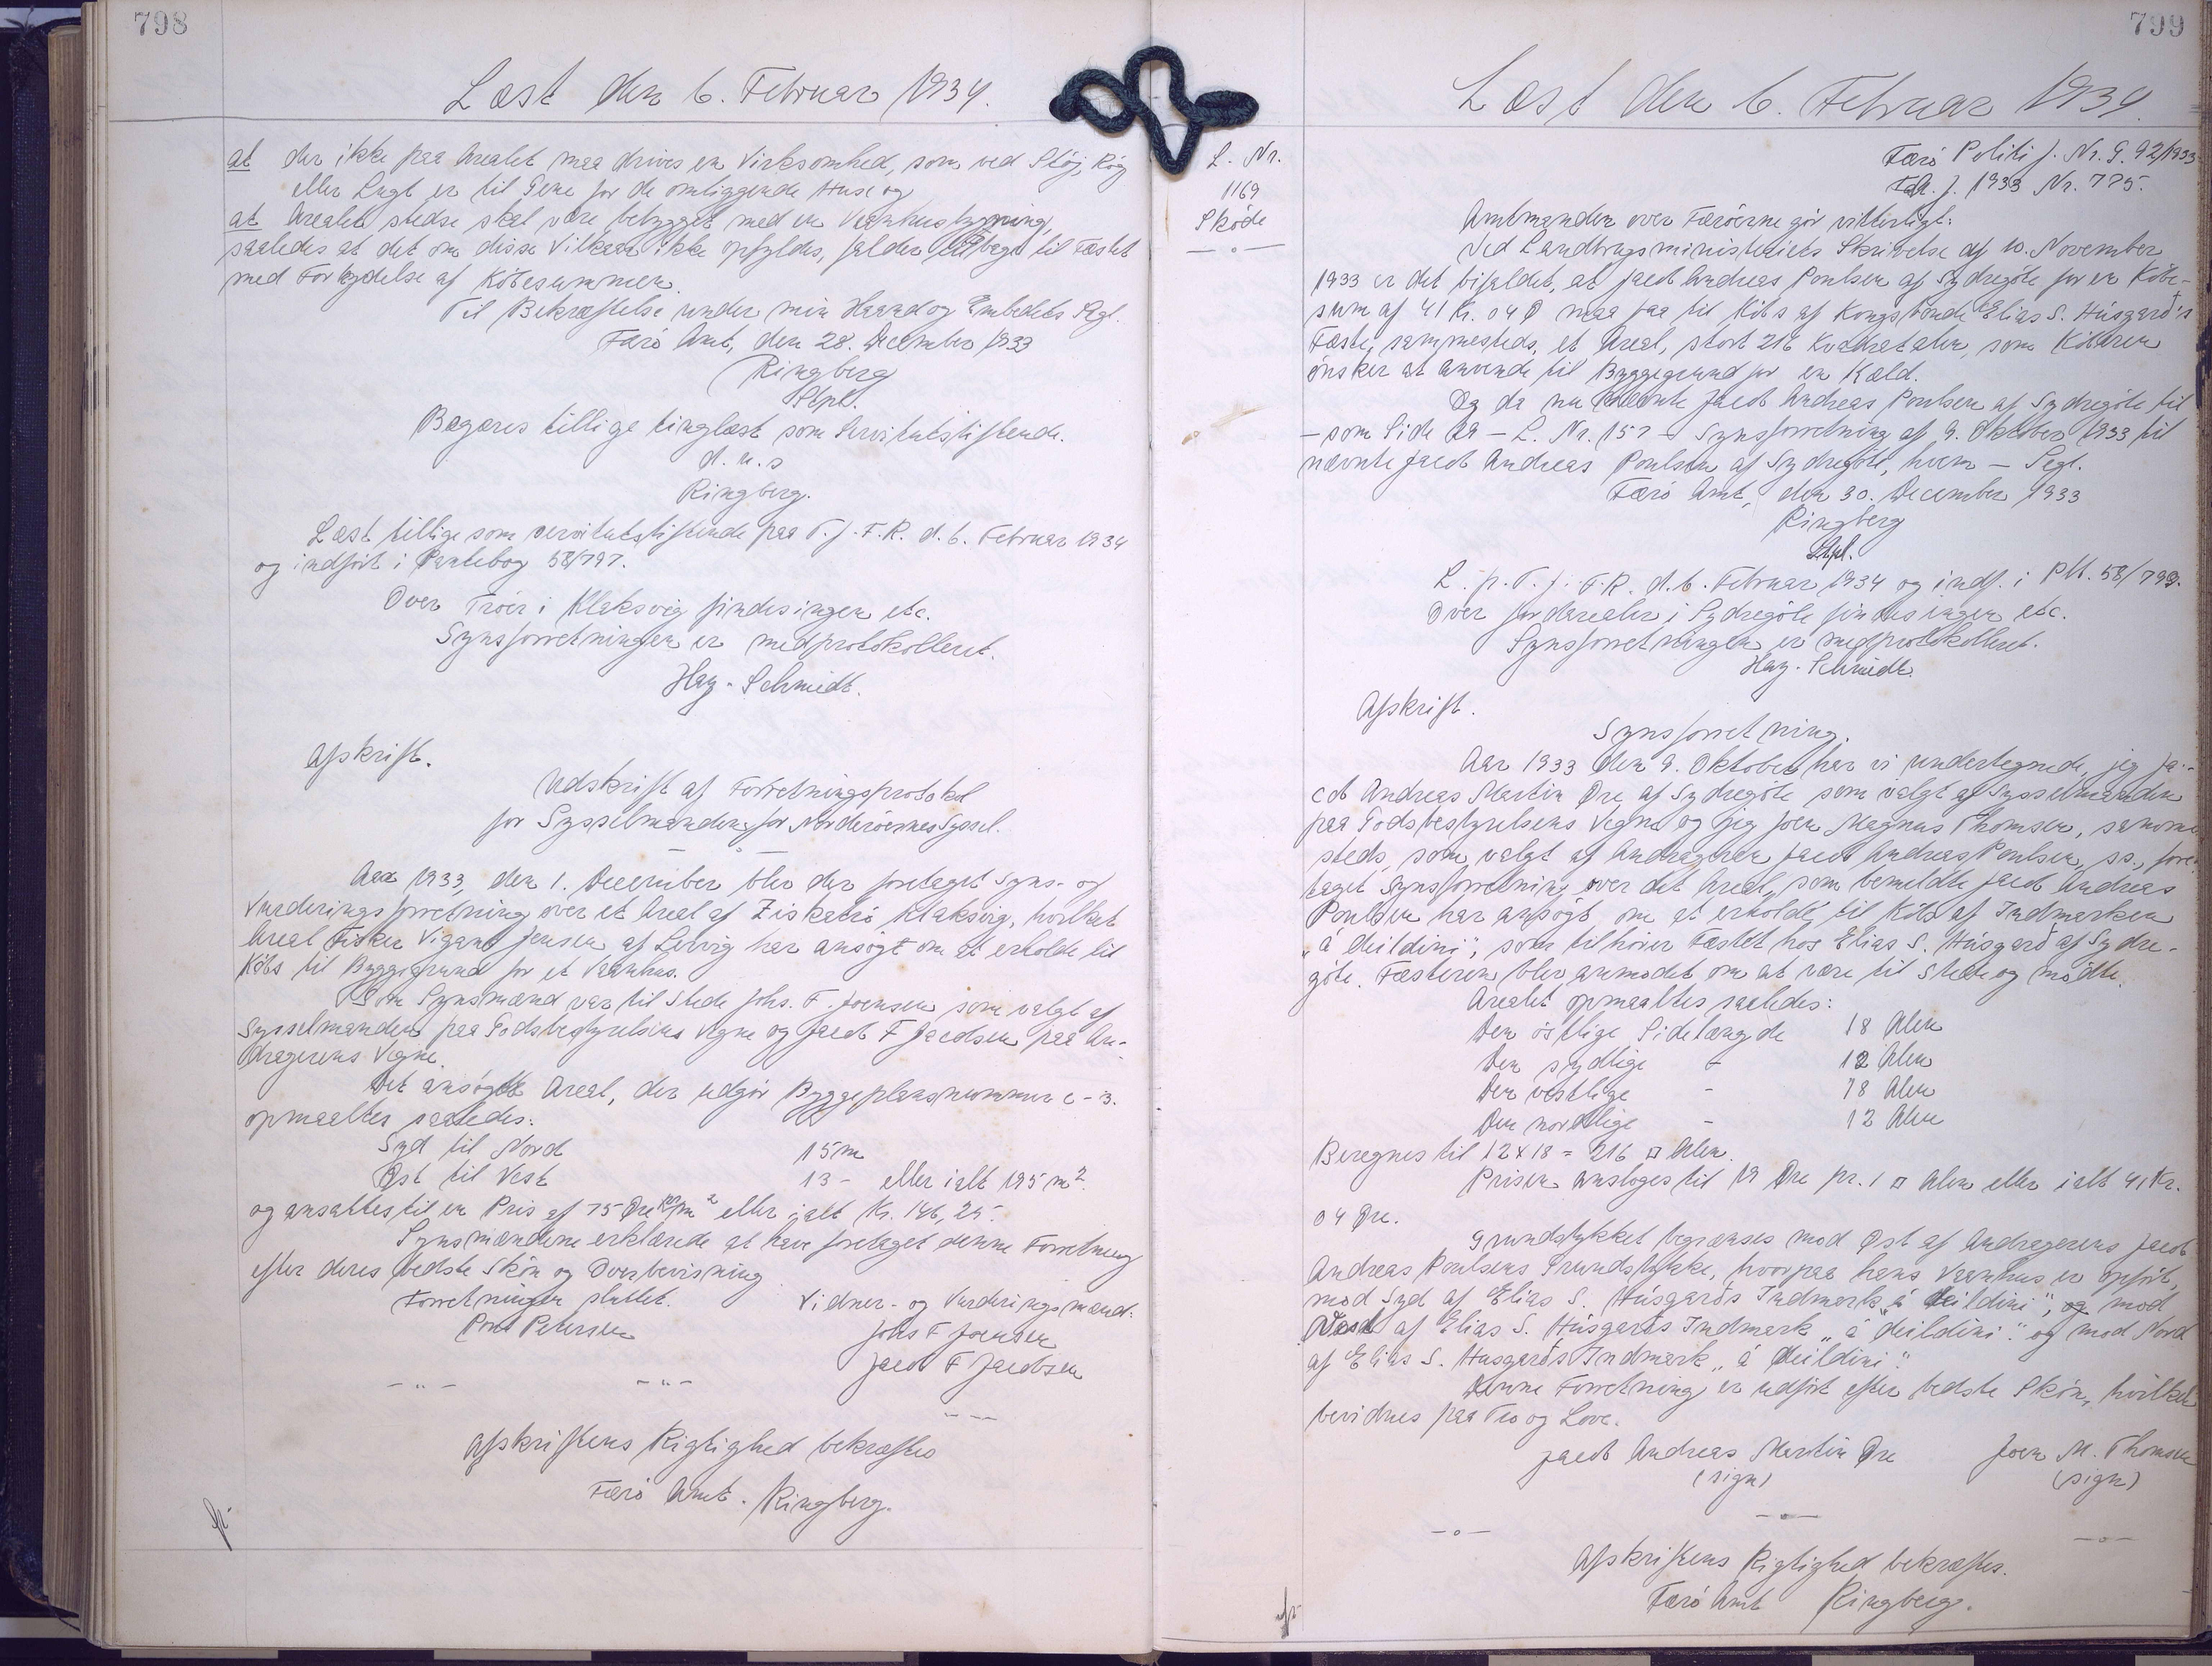 798
Læst den 6. Februar 1934.
at der ikke paa Arealet maa drives en Virksomhed, som ved Støj, Røg
eller Lugt er til Gene for de omliggende Huse og
at Arealet stedse skal være bebygget med en Vaanhusbygning,
saaledes at det om disse Vilkaar ikke opfyldes, falder tilbage til Fæstet
med Fortydelse af Købesummen.
Til Bekræftelse under min Haand og Embedets Segl.
Færö Amt, den 28. December 1933
Ringberg
Stpl.
Begæres tillige tinglæst som Servitutstiftende.
d. u. s
Ringberg.
Læst tillige som servitutstiftende paa T. f. F. R. d. 6. Februar 1934
og indført i Pantebog 58/797.
Over Tröir i Klaksvig findes ingen etc.
Synsforretningen er medprotokolleret.
Hay-Schmidt.
Afskrift.
Udskrift af Forretningsprotokol
for Sysselmanden for Norderöernes Syssel.
Aar 1933, den 1. December blev der foretaget Syns- og
Vurderingsforretning over et Areal af Ziskatrö, Klaksvig, hvilket
Areal Fisker Vigand Jensen af Lervig har ansögt om at erholde til
Köbs til Byggegrund for et Vaanhus.
Som Synsmænd var til Stede Johs. F. Joensen som valgt af
Sysselmanden paa Godsbestyrelsens Vegne og Jacob F Jacobsen paa An-
dragerens Vegne.
Det ansøgte Areal, der udgør Byggeplansnummer c - 3.
opmaaltes saaledes:
Syd til Nord 15 m
Øst til Vest 13 - eller ialt 195 m².
og ansattes til en Pris af 75 Øre pr m² eller ialt Kr. 146,25.
Synsmændene erklærede at have foretaget denne Forretning
efter deres bedste Skön og Overbevisning
Forretningen sluttet. Vidner- og Vurderingsmænd:
Poul Petersen Johs F Joensen
Jacob F Jacobsen
- " - - " -
- -
Afskriftens Rigtighed bekræftes
Færö Amt. Ringberg.
799
Læst den 6. Februar 1934.
L. Nr.
1169
Sköde
— o —
Færö Politi J. Nr. G. 92/1933
FA. J. 1933 Nr. 775.
Amtmanden over Færöerne gör vitterligt:
Ved Landbrugsministeriets Skrivelse af 10. November
1933 er det bifaldet, at Jacob Andreas Poulsen af Sydregöte for en Köbe-
sum af 41 Kr. 04 Ø maa faa til Köbs af Kongsbonde Elias S. Húsgarð's
Fæste, sammesteds, et Areal, stort 216 Kvadratalen, som Köberen
önsker at anvende til Byggegrund for en Kæld.
Og da nu nævnte Jacob Andreas Poulsen af Sydregöte til
— som Side 29 — L. Nr. 157 — Synsforretning af 9. Oktober 1933 til
nævnte Jacob Andreas Poulsen af Sydregöte, hvem — Segl.
Færö Amt, den 30. December 1933
Ringberg
Stpl.
L. p. T. f. F. R. d. 6. Februar 1934 og indf. i Ptb. 58/799.
Over Jordarealer i Sydregöte findes ingen etc.
Synsforretningen er medprotokolleret.
Hay-Schmidt.
Afskrift.
Synsforretning.
Aar 1933 den 9. Oktober har vi undertegnede, jeg Ja-
cob Andreas Martin Øre af Sydregöte som valgt af Sysselmanden
paa Godsbestyrelsens Vegne og jeg Joen Magnus Thomsen, samme
steds, som valgt af Andrageren Jacob Andreas Poulsen, ss., fore-
taget Synsforretning over det Areal, som bemeldte Jacob Andreas
Poulsen har ansögt om at erholde til Köbs af Indmarken
„á deildini“, som tilhörer Fæstet hos Elias S. Húsgarð af Sydre-
göte. Fæsteren blev anmodet om at være til Stede og mödte.
Arealet opmaaltes saaledes:
Den östlige Sidelængde 18 Alen
Den sydlige - 12 Alen
Den vestlige - 18 Alen
Den nordlige - 12 Alen
Beregnes til 12 x 18 = 216 □ Alen.
Prisen ansloges til 19 Øre pr. 1 □ Alen eller ialt 41 Kr.
04 Øre.
Grundstykket begrænses mod Øst af Andragerens Jacob
Andreas Poulsens Grundstykke, hvorpaa hans Vaanhus er opfört,
mod Syd af Elias S. Húsgarðs Indmark „á deildini“, og mod
Vest af Elias S. Húsgarðs Indmark „á deildini“ og mod Nord
af Elias S. Husgarðs Indmark „á deildini“.
Denne Forretning er udfört efter bedste Skön, hvilket
bevidnes paa Tro og Love.
Jacob Andreas Martin Øre Joen M. Thomsen
(sign) (sign)
— o —
— o — — o —
Afskriftens Rigtighed bekræftes.
Færö Amt Ringberg.